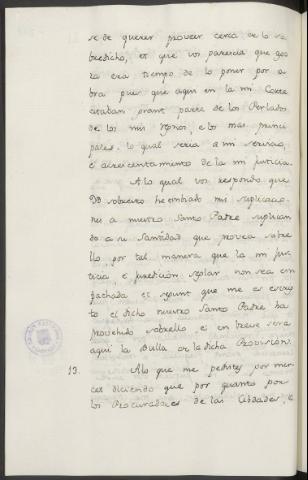 se de querer proveer cerca de lo so
bredicho, et que vos parecia que ago
ra era tiempo de lo poner por o
bra pues que aqui en la mi Corte
estaban grant parte de los Perlados
de los mis regnos, e los mas princi
pales, lo qual seria a mi servicio,
e acrescentamiento de la mi justicia.
A lo qual vos respondo que
Yo sobresto he embiado mis suplicacio
nes a nuestro Santo Padre suplican
do a su Santidad que provea sobre
llo por tal manera que la mi jus
ticia, e juredicion seglar non sea em
pachada et segunt que me es escrip
to el dicho nuestro Santo Padre ha
provehido sobrello, e en breve sera
aqui la Bulla de la dicha Provision.
13. A lo que me pedistes por mer
ced diciendo que por quanto por
los Procuradores de las Cibdades, e